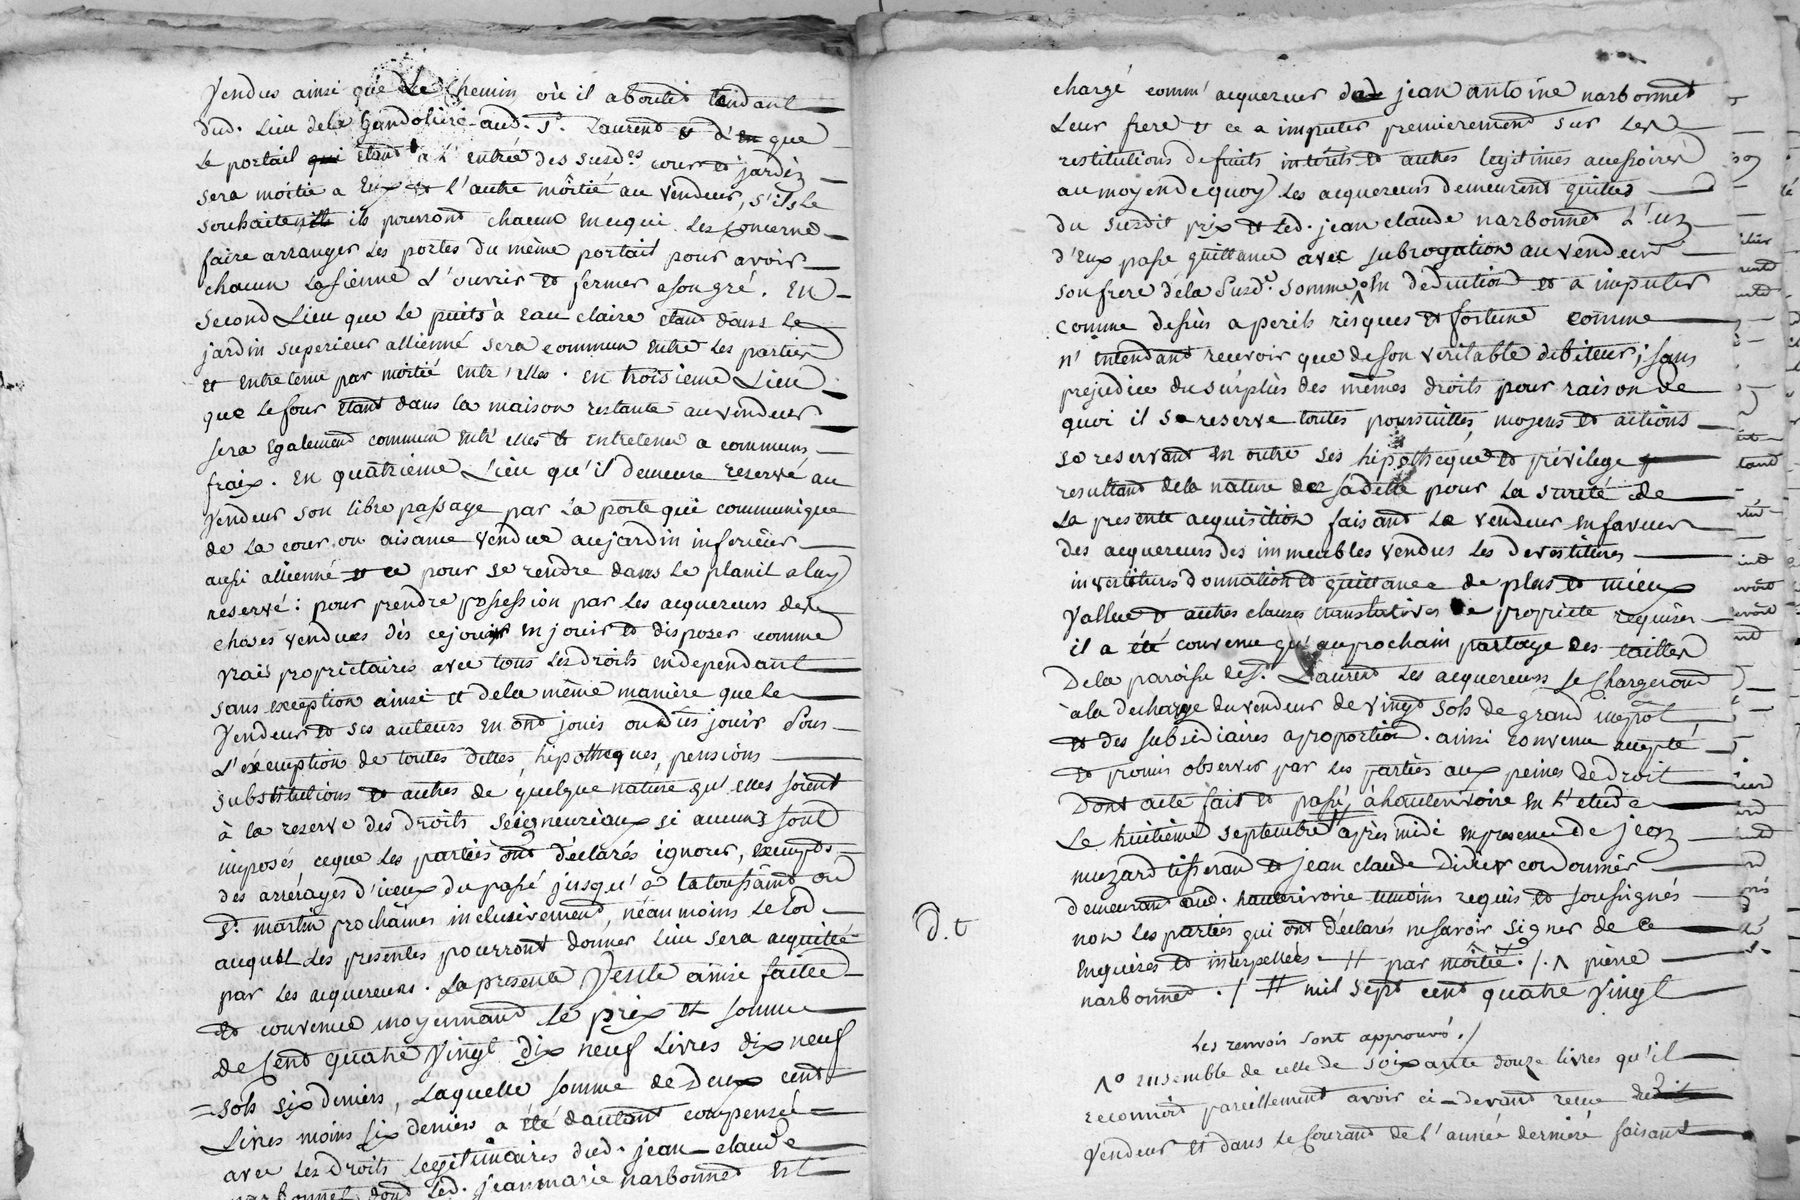 Vendus ainsi que le Chemin où il aboutit tendant
dud. Lieu dela Gandoliere aud. St. Laurent et d'en que
Le portail qui étant à l'entrée des susd.es cour et jardin
sera moitié a Eux et l'autre môitié au vendeur, s'ils le
souhaitent ils pourront chacun en ce qui les concerne
faire arranger les portes du même portail pour avoir
chacun la sienne l'ouvrir et fermer a son gré. En
second Lieu que le puits à eau claire étant dans le
jardin superieur allienné sera commun entre les parties
et entretenu par môitié entr'elles. en troisieme Lieu
que le four étant dans la maison restante au vendeur
sera également commun entr'elles et entretenu a communs
fraix. En quatrieme Lieu qu'il demeure reservé au
Vendeur son libre passage par la porte qui communique
de la cour ou aisance vendue au jardin inferieur
aussi allienné et ce pour se rendre dans le planit a luy
reservé: pour prendre possession par les acquereurs des
choses vendues dès cejour en jouir et disposer comme
vrais proprietaires avec tous les droits en dependant
sans exception ainsi et de la même manière que le
Vendeur et ses auteurs en ont jouis ou dus jouir sous
l'éxemption de toutes dettes, hipotheques, pensions
substitutions et autres de quelque nature qu'elles soient
à la reserve des droits seigneuriaux si aucuns sont
imposés ceque les parties ont déclarés ignorer, exempts
des arrérages d'iceux du passé jusqu'à la toussaint ou
St. martin prochaines inclusivement, néanmoins le lod
auquel les presentes pourront donner lieu sera acquitté
par les acquereurs. La presente Vente ainsi faitte
et convenue moyennant le prix et somme
de Cent quatre Vingt dix neuf Livres dix neuf
sols six deniers, Laquelle somme de Deux cent
Livres moins six deniers a été d'autant compensée
avec les droits légitimaires dud. jean-claude
narbonnet dont led. jean marie narbonnet est
chargé comm' acquereur de jean antoine narbonnet
Leur frere et ce a imputer premierement sur les
restitutions de fruits intérêts et autres legitimes accessoires
au moyen de quoy les acquereurs demeurent quittes
du susdit prix et led. jean claude narbonnet L'un
d'Eux passe quittance avec subrogation au vendeur
son frere dela susd.e somme ^o En deduction et a imputer
comme dessus a perils risques et fortune comme
n'intendant recevoir que de son véritable debiteur, sans
prejudice du surplus des mêmes droits pour raison de
quoi il se reserve toutes poursuittes, moyens et actions
se reservant en outre ses hipotheque et privilege
resultant dela nature de sa dette pour la sureté de
la presente acquisition faisant le vendeur en faveur
des acquereurs des immeubles vendus les devestitures
investitures donnation et quittance de plus et mieux
vallue et autres clauses translatives de proprieté requises
il a été convenu qu'au prochain partage des tailles
De la paroisse de St. Laurent les acquereurs se Chargeront
à la decharge du vendeur de vingt sols de grand impôt
et des subsidiaires aproportion. ainsi convenu accepté
et promis observer par les parties aux peines de droit
Dont acte fait et passé à hauterivoire en l'etude
Le huitieme septembre # après midi en presence de jean
muzard tisseran et jean claude Didier cordonnier
demeurant aud. hauterivoire temoins requis et soussignés
non les parties qui ont déclarés ne savoir signer de ce
Enquises et interpellées # par môitié ./. ^ pierre
narbonnet ./ # mil sept cent quatre Vingt
D.t
Les renvois sont approuvés ./
^o ensemble de celle de soixante douze livres qu'il
reconnoit pareillement avoir ci-devant reçue dudit
Vendeur et dans le Courant de l'année derniere faisant